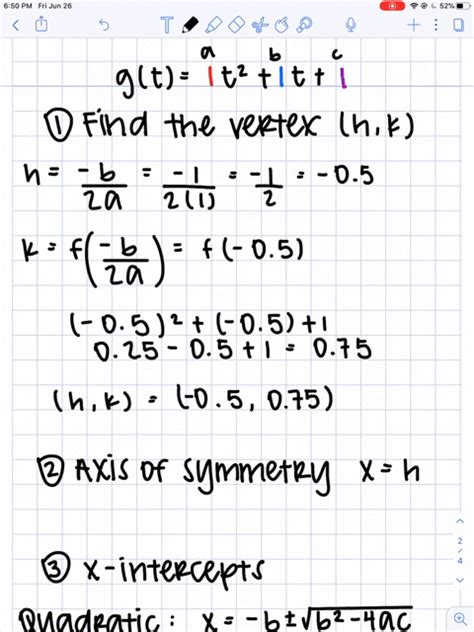 6:50 PM Fri Jun 26
52%
a b c
g(t) = 1t² + 1t + 1
① Find the vertex (h,k)
h = -b/2a = -1/2(1) = -1/2 = -0.5
k = f(-b/2a) = f(-0.5)
(-0.5)² + (-0.5) + 1
0.25 - 0.5 + 1 = 0.75
(h,k) = (-0.5, 0.75)
② Axis of symmetry x = h
③ x-intercepts
Quadratic: x = -b ± √b² - 4ac
2
4